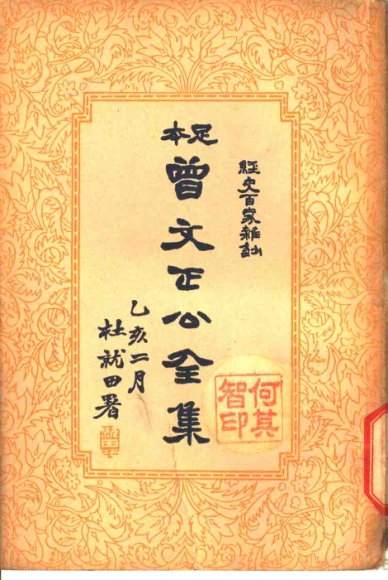 經史百家雜鈔
足本
曾文正公全集
乙亥二月
杜就田署
何其
智印